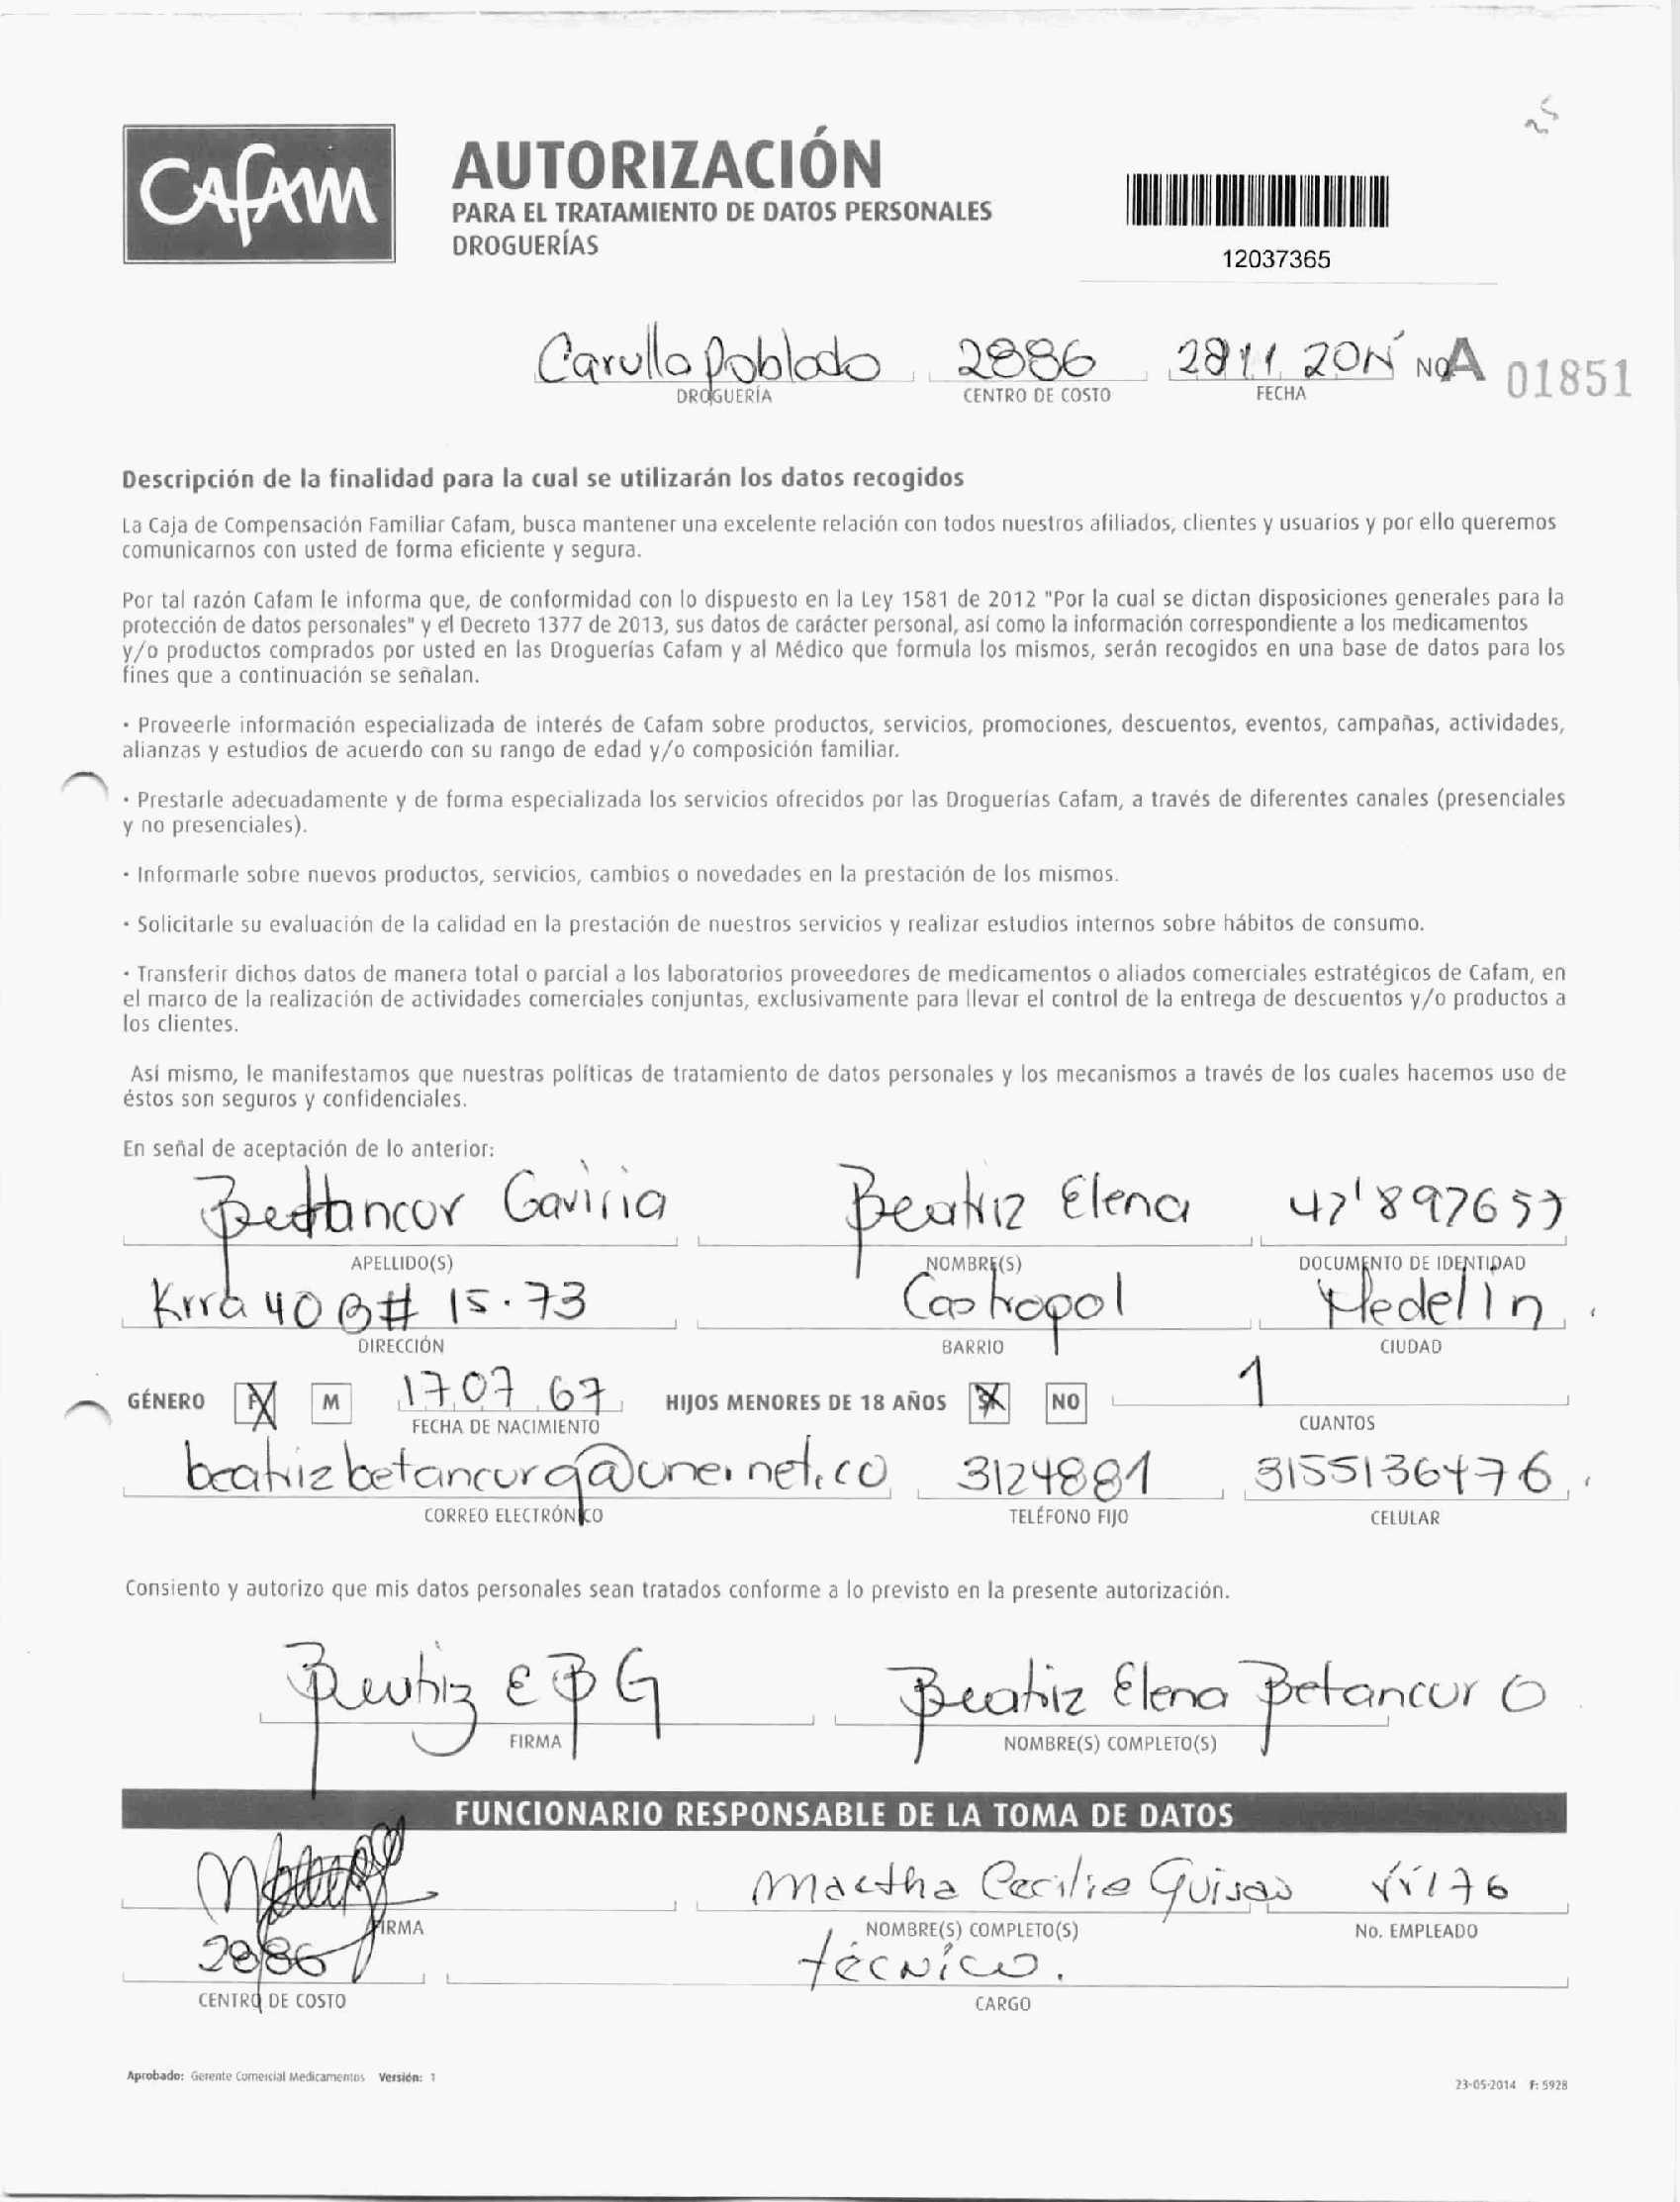 25
CAFAM
AUTORIZACIÓN
PARA EL TRATAMIENTO DE DATOS PERSONALES
DROGUERÍAS
12037365
Carulla Poblado 2886 2811 NoA 01851
DROGUERÍA CENTRO DE COSTO FECHA
Descripción de la finalidad para la cual se utilizarán los datos recogidos
La Caja de Compensación Familiar Cafam, busca mantener una excelente relación con todos nuestros afiliados, clientes y usuarios y por ello queremos
comunicarnos con usted de forma eficiente y segura.
Por tal razón Cafam le informa que, de conformidad con lo dispuesto en la Ley 1581 de 2012 "Por la cual se dictan disposiciones generales para la
protección de datos personales" y el Decreto 1377 de 2013, sus datos de carácter personal, así como la información correspondiente a los medicamentos
y/o productos comprados por usted en las Droguerías Cafam y al Médico que formula los mismos, serán recogidos en una base de datos para los
fines que a continuación se señalan.
· Proveerle información especializada de interés de Cafam sobre productos, servicios, promociones, descuentos, eventos, campañas, actividades,
alianzas y estudios de acuerdo con su rango de edad y/o composición familiar.
· Prestarle adecuadamente y de forma especializada los servicios ofrecidos por las Droguerías Cafam, a través de diferentes canales (presenciales
y no presenciales).
· Informarle sobre nuevos productos, servicios, cambios o novedades en la prestación de los mismos.
· Solicitarle su evaluación de la calidad en la prestación de nuestros servicios y realizar estudios internos sobre hábitos de consumo.
· Transferir dichos datos de manera total o parcial a los laboratorios proveedores de medicamentos o aliados comerciales estratégicos de Cafam, en
el marco de la realización de actividades comerciales conjuntas, exclusivamente para llevar el control de la entrega de descuentos y/o productos a
los clientes.
Así mismo, le manifestamos que nuestras políticas de tratamiento de datos personales y los mecanismos a través de los cuales hacemos uso de
éstos son seguros y confidenciales.
En señal de aceptación de lo anterior:
Gaviria Beatriz Elena 42'897657
APELLIDO(S) NOMBRE(S) DOCUMENTO DE IDENTIDAD
Krra 40 B# 15.73 Castropol Medelin
DIRECCIÓN BARRIO CIUDAD
GÉNERO F M 17 07 67 HIJOS MENORES DE 18 AÑOS SI NO 1
FECHA DE NACIMIENTO CUANTOS
beatrizbetancurg@une.net.co 3124881 3155136476
CORREO ELECTRÓNICO TELÉFONO FIJO CELULAR
Consiento y autorizo que mis datos personales sean tratados conforme a lo previsto en la presente autorización.
Beatriz E B G Beatriz Elena Betancur G
FIRMA NOMBRE(S) COMPLETO(S)
FUNCIONARIO RESPONSABLE DE LA TOMA DE DATOS
Martha Cecilia
FIRMA NOMBRE(S) COMPLETO(S) No. EMPLEADO
2886 técnico.
CENTRO DE COSTO CARGO
Aprobado: Gerente Comercial Medicamentos Versión: 1
23-05-2014 F: 5928